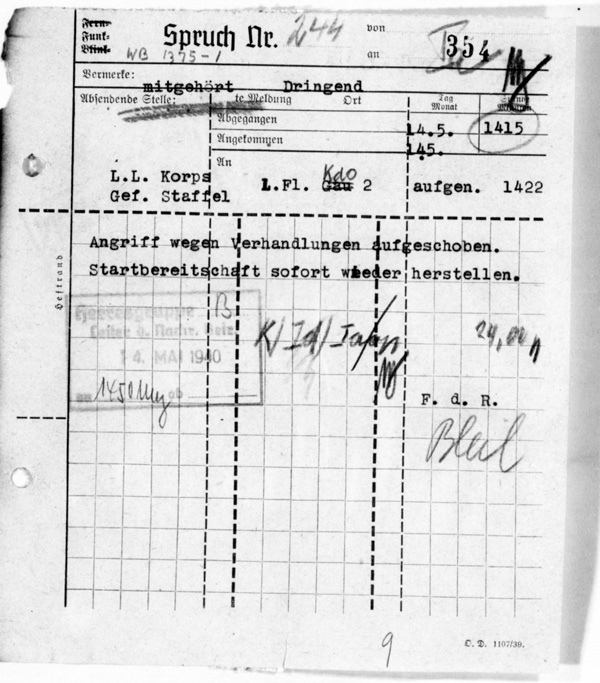 Fern-
Funk-
Blink-
Spruch Nr. 244
von
an
354
WB 1375-1
Vermerke:
mitgehört Dringend
Absendende Stelle:
te Meldung Ort
Tag
Monat
Abgegangen
14.5. 1415
Angekommen
145.
An
L.L. Korps
Gef. Staffel
L.Fl. Gau Kdo 2
aufgen. 1422
Angriff wegen Verhandlungen aufgeschoben.
Startbereitschaft sofort wieder herstellen.
Heftrand
Heeresgruppe B
Leiter d. Nachr. Betr.
14. MAI 1940
an 1450 ab
F. d. R.
9
O. D. 1107/39.